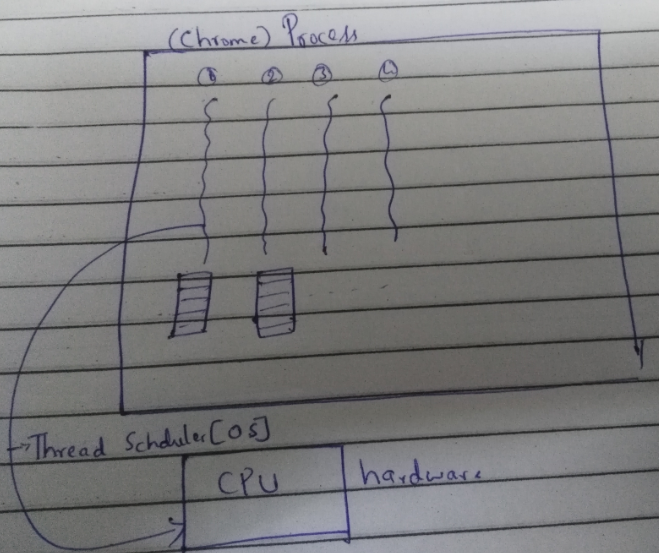 (Chrome) Process
① ② ③ ④
→Thread Schduler[OS]
CPU hardware